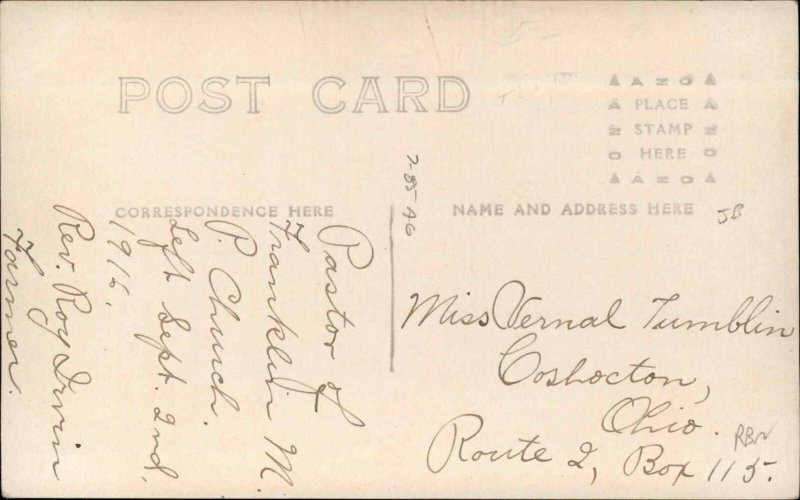 POST CARD
AZO
PLACE
STAMP
HERE
AZO
CORRESPONDENCE HERE
NAME AND ADDRESS HERE
Pastor of
Franklin M.
P. Church.
Left Sept. 2nd,
1916.
Rev. Roy Irvin
Farmer.
7-85 A6
JB
Miss Vernal Tumblin
Coshocton,
Ohio.
Route 2, Box 115.
RBN